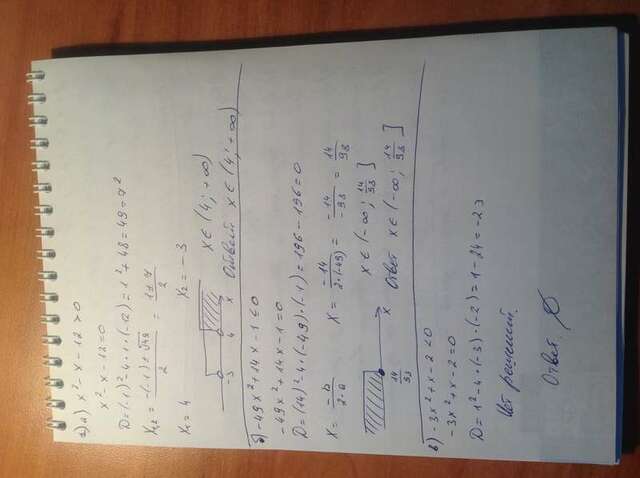 2) a) x² - x - 12 > 0
x² - x - 12 = 0
D = (-1)² 4 · 1 · (-12) = 1 + 48 = 49 = 7²
x₁,₂ = -(-1) ± √49 / 2 = 1 ± 7 / 2
x₁ = 4 x₂ = -3
-3 4 x
x ∈ (4; +∞)
Ответ x ∈ (4; +∞)
б) -49x² + 14x - 1 ≤ 0
-49x² + 14x - 1 = 0
D = (14)² 4 · (-49) · (-1) = 196 - 196 = 0
x = -b / 2·a x = -14 / 2·(-49) = -14 / -98 = 14 / 98
14/98 x
x ∈ (-∞; 14/98]
Ответ x ∈ (-∞; 14/98]
в) -3x² + x - 2 < 0
-3x² + x - 2 = 0
D = 1² - 4 · (-3) · (-2) = 1 - 24 = -23
Нет решений
Ответ: ∅